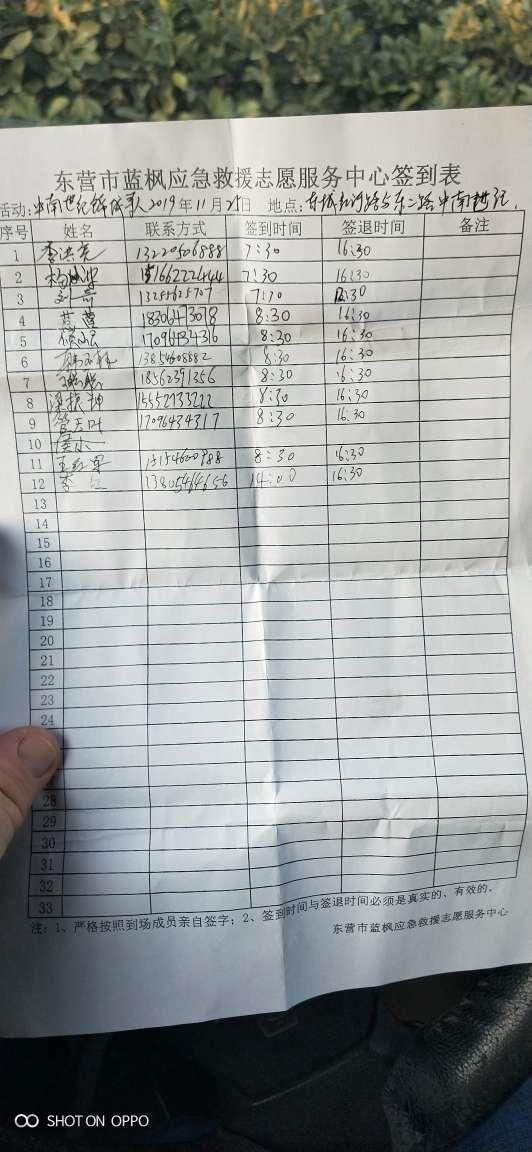 东营市蓝枫应急救援志愿服务中心签到表
活动: 中南世纪锦城 2019年11月23日 地点: 东城 路与东二路中南世纪
序号 姓名 联系方式 签到时间 签退时间 备注
1 李洪亮 13220506888 7:30 16:30
2 15166222444 7:30 16:30
3 7:30 16:30
4 18306473078 8:30 16:30
5 17096434316 8:30 16:30
6 13854608882 8:30 16:30
7 18562391356 8:30 16:30
8 梁振坤 15552133222 8:30 16:30
9 17096434317 8:30 16:30
10
11 8:30 16:30
12 李 13805464656 14:00 16:30
13
14
15
16
17
18
19
20
21
22
23
24
28
29
30
31
32
33
注: 1、严格按照到场成员亲自签字; 2、签到时间与签退时间必须是真实的、有效的。
东营市蓝枫应急救援志愿服务中心
SHOT ON OPPO